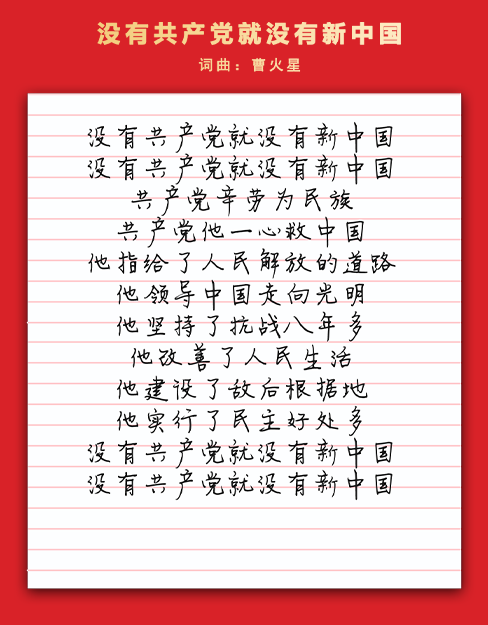 没有共产党就没有新中国
词曲：曹火星
没有共产党就没有新中国
没有共产党就没有新中国
共产党辛劳为民族
共产党他一心救中国
他指给了人民解放的道路
他领导中国走向光明
他坚持了抗战八年多
他改善了人民生活
他建设了敌后根据地
他实行了民主好处多
没有共产党就没有新中国
没有共产党就没有新中国